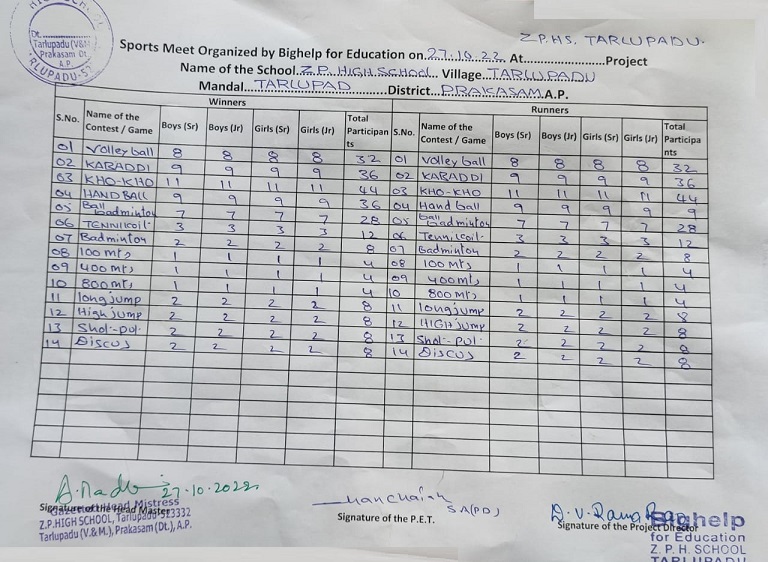 Z.P.H.S. TARLUPADU.
Dt.
Tarlupadu (V&M)
Prakasam Dt.
A.P.
Sports Meet Organized by Bighelp for Education on 27.10.22 At......................Project
Name of the School Z.P. HIGH SCHOOL Village TARLUPADU
Mandal TARLUPAD District PRAKASAM A.P.
Winners Runners
S.No. Name of the Contest / Game Boys (Sr) Boys (Jr) Girls (Sr) Girls (Jr) Total Participan ts S.No. Name of the Contest / Game Boys (Sr) Boys (Jr) Girls (Sr) Girls (Jr) Total Participa nts
01 Volley ball 8 8 8 8 32 01 Volley ball 8 8 8 8 32
02 KABADDI 9 9 9 9 36 02 KABADDI 9 9 9 9 36
03 KHO-KHO 11 11 11 11 44 03 KHO-KHO 11 11 11 11 44
04 HAND BALL 9 9 9 9 36 04 Hand ball 9 9 9 9 9
05 Ball badminton 7 7 7 7 28 05 ball badminton 7 7 7 7 28
06 TENNIKOIT 3 3 3 3 12 06 Tennikoit 3 3 3 3 12
07 Badminton 2 2 2 2 8 07 Badminton 2 2 2 2 8
08 100 mts 1 1 1 1 4 08 100 mts 1 1 1 1 4
09 400 mts 1 1 1 1 4 09 400 mts 1 1 1 1 4
10 800 mts 1 1 1 1 4 10 800 mts 1 1 1 1 4
11 long jump 2 2 2 2 8 11 long jump 2 2 2 2 8
12 High jump 2 2 2 2 8 12 HIGH jump 2 2 2 2 8
13 Shot-put 2 2 2 2 8 13 Shot-put 2 2 2 2 8
14 Discus 2 2 2 2 8 14 Discus 2 2 2 2 8
27-10-2022
SA(PD)
Signature of the Head Master
Head Mistress
Z.P.HIGH SCHOOL, Tarlupadu-523332
Tarlupadu (V.& M.), Prakasam (Dt.), A.P.
Signature of the P.E.T.
D.V. Rama Rao
Signature of the Project Director
Bighelp
for Education
Z. P. H. SCHOOL
TARLUPADU